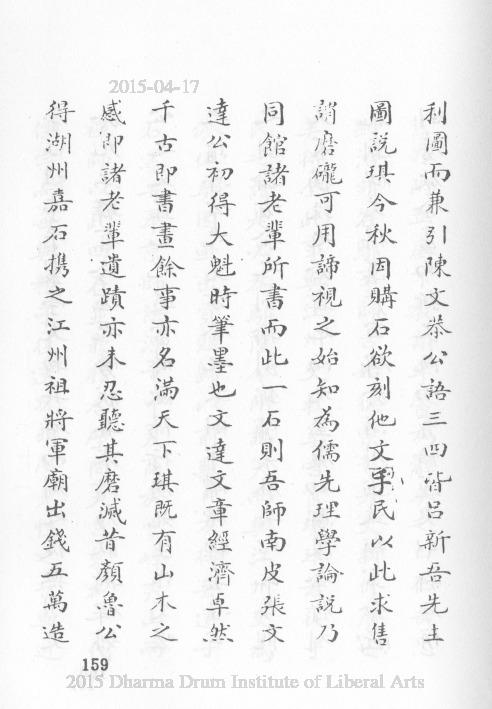 2015-04-17
利圖而兼引陳文恭公語三四皆呂新吾先生
圖說琪今秋因購石欲刻他文手民以此求售
謂磨礲可用諦視之始知為儒先理學論說乃
同館諸老輩所書而此一石則吾師南皮張文
達公初得大魁時筆墨也文達文章經濟卓然
千古即書畫餘事亦名滿天下琪既有山木之
感即諸老輩遺蹟亦未忍聽其磨滅昔顏魯公
得湖州嘉石攜之江州祖將軍廟出錢五萬造
159
2015 Dharma Drum Institute of Liberal Arts